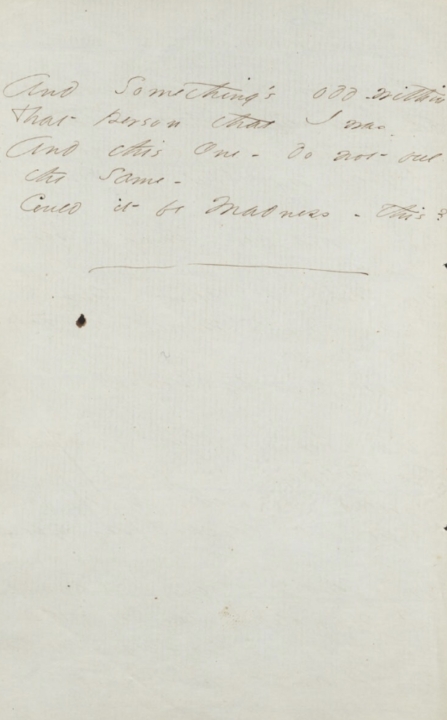 And Something's odd - within -
That person that I was -
And this One - do not feel
the Same -
Could it be Madness - this?